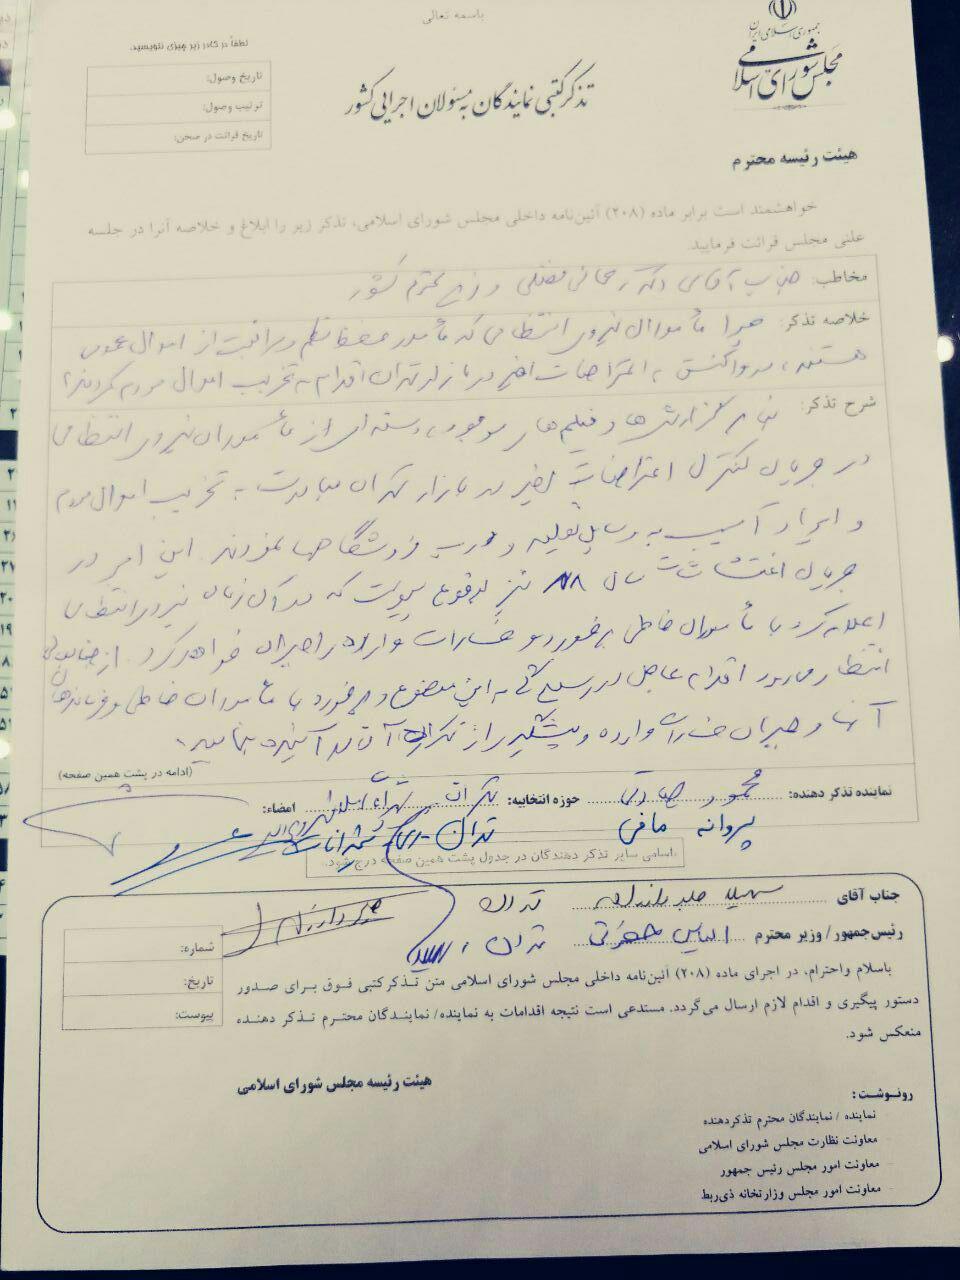 باسمه تعالی
جمهوری اسلامی ایران
مجلس شورای اسلامی
تذکر کتبی نمایندگان به مسئولان اجرایی کشور
لطفاً در کادر زیر چیزی ننویسید.
تاریخ وصول:
ترتیب وصول:
تاریخ قرائت در صحن:
هیئت رئیسه محترم
خواهشمند است برابر ماده (۲۰۸) آئین‌نامه داخلی مجلس شورای اسلامی، تذکر زیر را ابلاغ و خلاصه آنرا در جلسه
علنی مجلس قرائت فرمایید.
مخاطب: جناب آقای دکتر رحمانی فضلی وزیر محترم کشور
خلاصه تذکر: چرا مأموران نیروی انتظامی که مأمور حفظ نظم و مراقبت از اموال عمومی
هستند، در واکنش به اعتراضات اخیر در بازار تهران اقدام به تخریب اموال مردم کردند؟
شرح تذکر: بنا بر گزارش‌ها و فیلم‌های موجود، دسته‌ای از مأموران نیروی انتظامی
در جریان کنترل اعتراضات اخیر در بازار تهران مبادرت به تخریب اموال مردم
و ایراد آسیب به وسایل نقلیه و درب فروشگاهها نمودند. این امر در
جریان اغتشاشات سال ۸۸ نیز به وقوع پیوست که در آن زمان نیروی انتظامی
اعلام کرد با مأموران خاطی برخورد و خسارات وارده را جبران خواهد کرد. از جنابعالی
انتظار می‌رود اقدام عاجل در رسیدگی به این موضوع و برخورد با مأموران خاطی و فرماندهان
آنها و جبران خسارات وارده و پیشگیری از تکرار آن در آینده نمایید.
(ادامه در پشت همین صفحه)
نماینده تذکر دهنده: محمود صادقی حوزه انتخابیه: تهران امضاء:
پروانه مافی تهران
اسامی سایر تذکر دهندگان در جدول پشت همین صفحه درج شود.
جناب آقای سهیلا جلودارزاده تهران
رئیس‌جمهور / وزیر محترم الیاس حضرتی تهران
شماره:
تاریخ:
پیوست:
باسلام واحترام، در اجرای ماده (۲۰۸) آئین‌نامه داخلی مجلس شورای اسلامی متن تذکر کتبی فوق برای صدور
دستور پیگیری و اقدام لازم ارسال می‌گردد. مستدعی است نتیجه اقدامات به نماینده/ نمایندگان محترم تذکر دهنده
منعکس شود.
هیئت رئیسه مجلس شورای اسلامی
رونوشت:
نماینده / نمایندگان محترم تذکردهنده
معاونت نظارت مجلس شورای اسلامی
معاونت امور مجلس رئیس جمهور
معاونت امور مجلس وزارتخانه ذی‌ربط